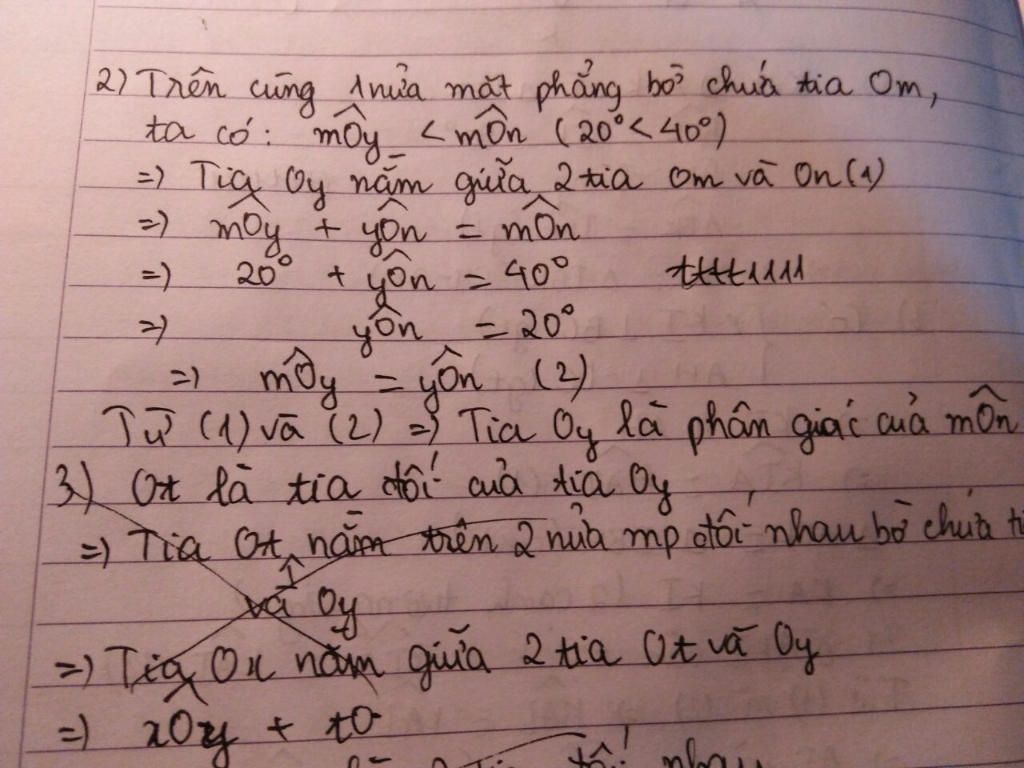 2) Trên cùng 1 nửa mặt phẳng bờ chứa tia Om,
ta có: mÔy < mÔn (20° < 40°)
=> Tia Oy nằm giữa 2 tia Om và On (1)
=> mÔy + yÔn = mÔn
=> 20° + yÔn = 40°
=> yÔn = 20°
=> mÔy = yÔn (2)
Từ (1) và (2) => Tia Oy là phân giác của mÔn
3) Ot là tia đối của tia Oy
=> Tia Ot nằm trên 2 nửa mp đối nhau bờ chứa
và Oy
=> Tia Ox nằm giữa 2 tia Ot và Oy
=> xÔy + tO
đối nhau